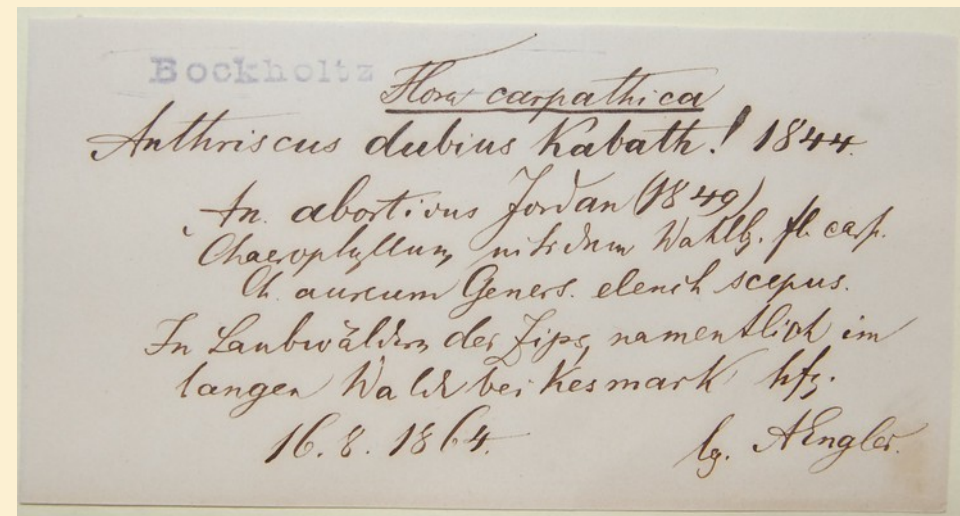 Bockholtz
Flora carpathica
Anthriscus dubius Kabath! 1844.
An. abortivus Jordan (1849)
Chaerophyllum nitidum Wahlbg. fl. carp.
Ch. aureum Geners. elench scepus.
In Laubwäldern der Zips, namentlich im
langen Wald bei Kesmark hfg.
16. 8. 1864.
lg. AEngler.